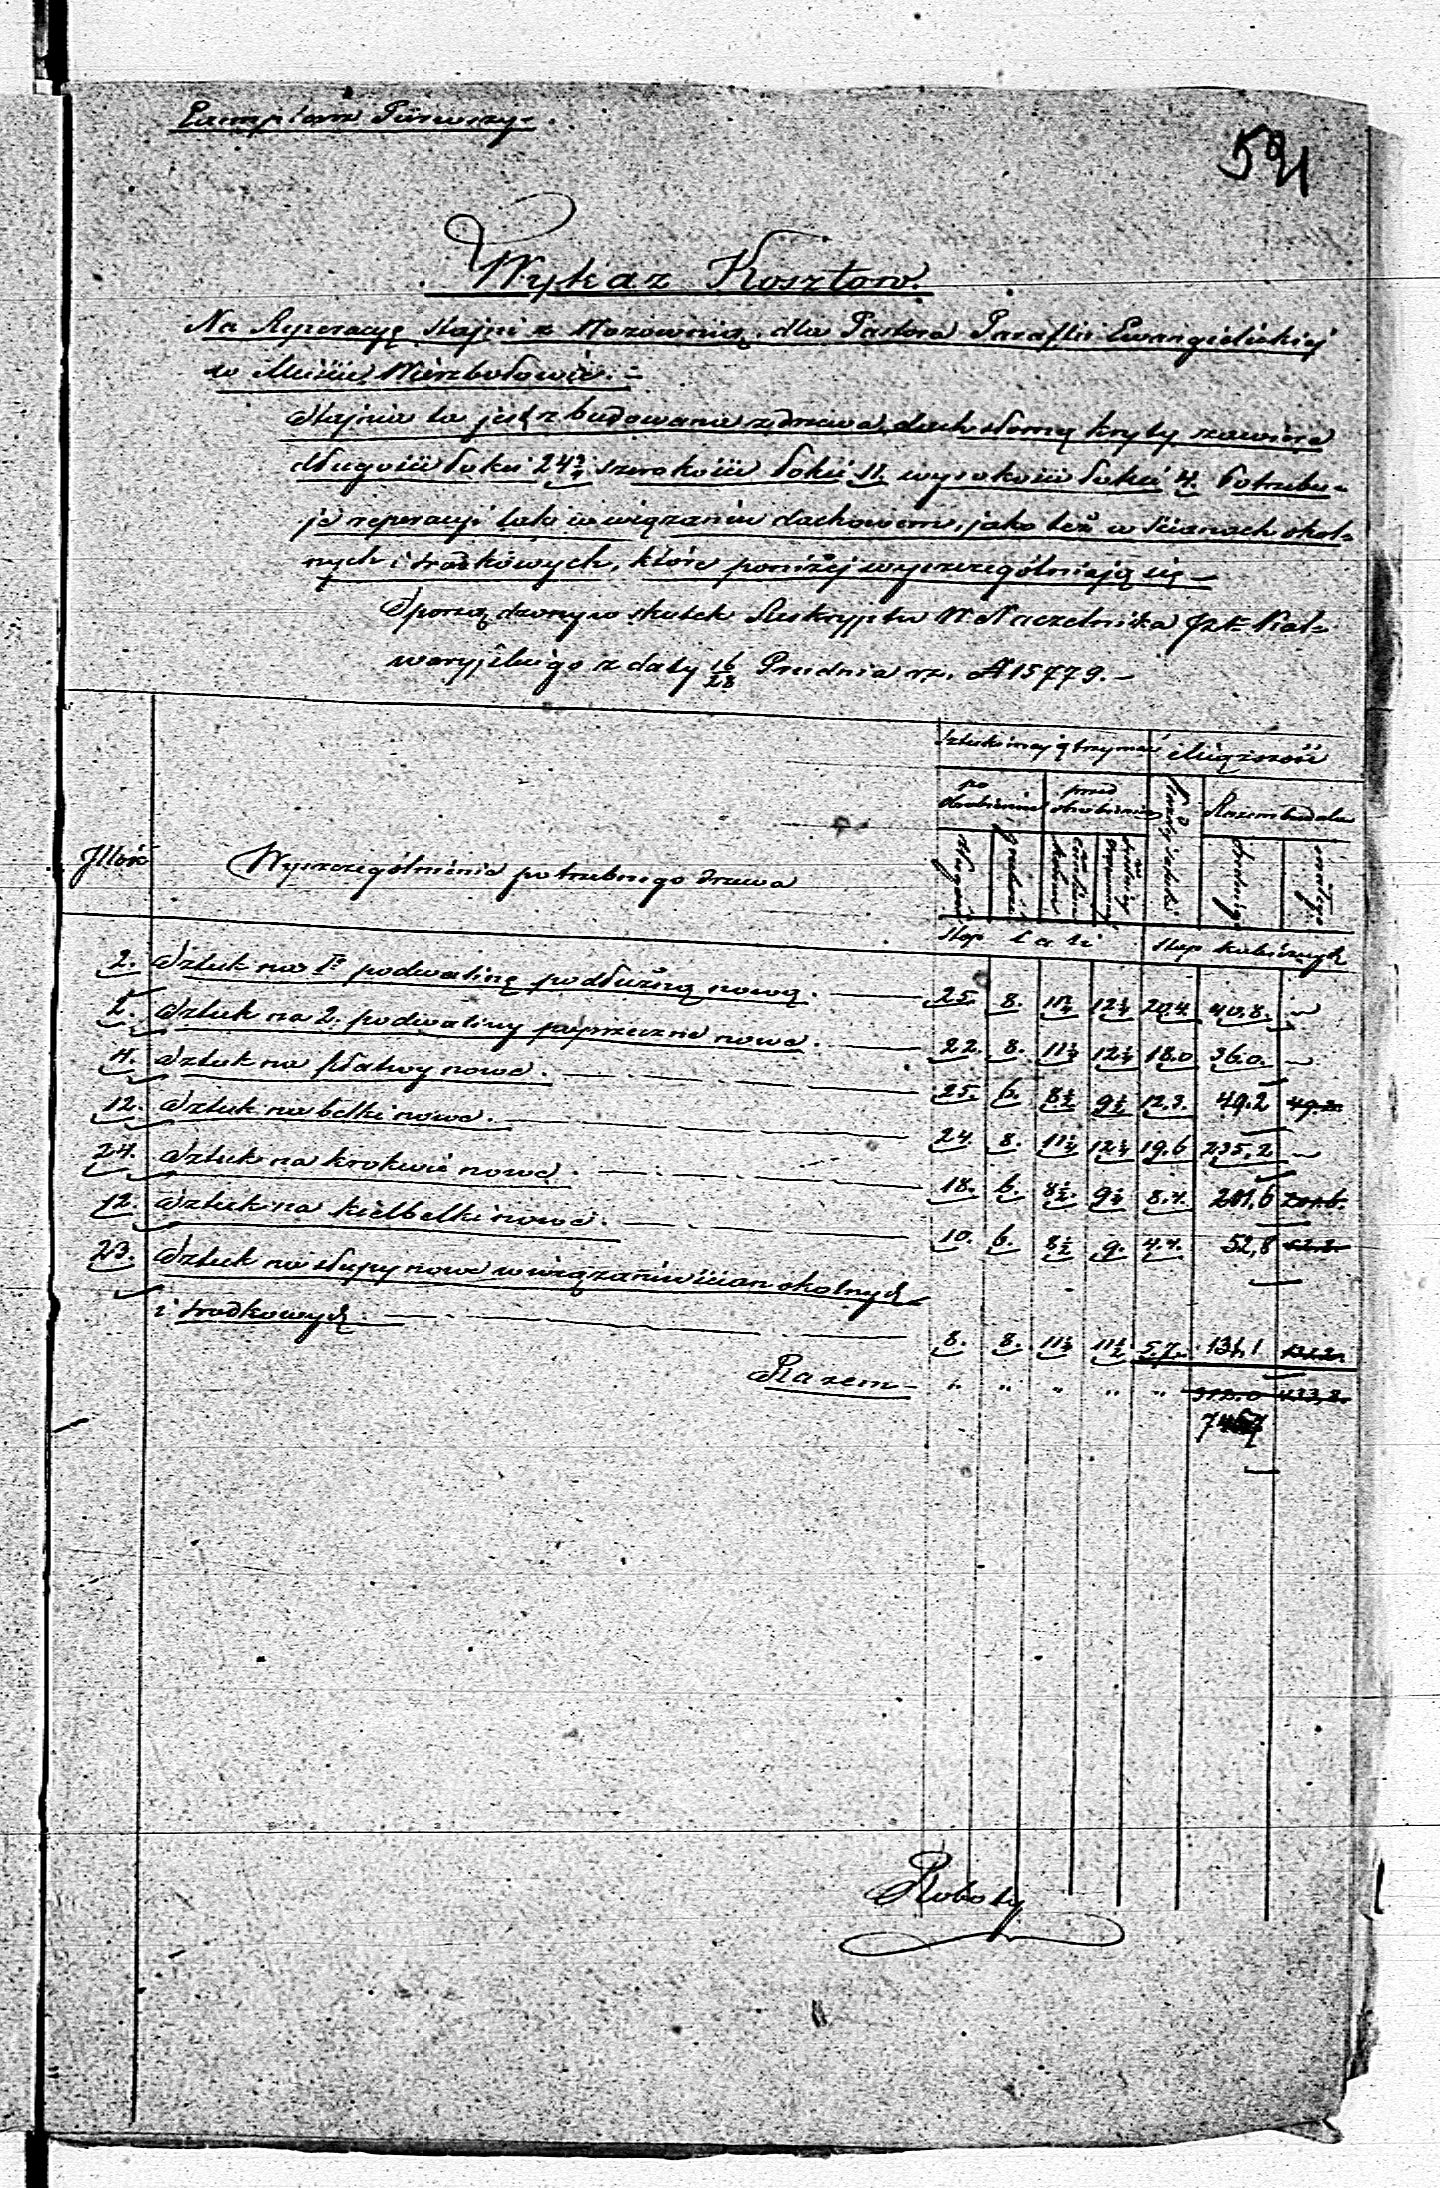 Exemplarz Pierwszy.
591
Wykaz Kosztow.
Na Reperacyę stajni z Wozownią dla Pastora Parafii Ewangielickiej
w Mieście Wierzbołowie. =
Stajnia ta jest zbudowana z drzewa, dach słomą kryty, zawiera
długości łokci 24¾ szerokości łokci 11. wysokości łokci 4. Potrzebu=
je reperacyi tak w wiązaniu dachowem, jako też w ścianach okol=
nych i środkowych, które poniżej wyszczególniają się —
Sporządzony w skutek Reskryptu W. Naczelnika Kal=
waryjskiego z daty 16/28 Grudnia rz. № 15779. —
Sztuki mają trzymać Miąższość
po obrobieniu przed obrobieniem Razem
Jllość Wyszczególnienie potrzebnego drzewa
stóp cali stóp kubicznych
2. Sztuk na 1ą podwalinę podłużną nową. 25. 8. 11¼ 12¼ 20.4. 40.8. —
2. Sztuk na 2. podwaliny poprzeczne nowe. 22. 8. 11¼ 12¼ 18.0 36.0. —
4. Sztuk na płatwy nowe. 25. 6. 8½ 9½ 12.3. 49.2 49.2.
12. Sztuk na belki nowe. 24. 8. 11¼ 12¼ 19.6 235.2 —
24. Sztuk na krokwie nowe. 18. 6. 8½. 9½ 8.4. 201,6 201.6.
12. Sztuk na kielbelki nowe. 10. 6. 8½ 9. 4.4. 52,8 52.8.
23. Sztuk na słupy nowe w wiązaniu ścian okolnych
i środkowych. 8. 8. 11¼ 11½ 5.7. 131,1 131.2.
Razem — " " " " " 312.0 433,8.
Roboty